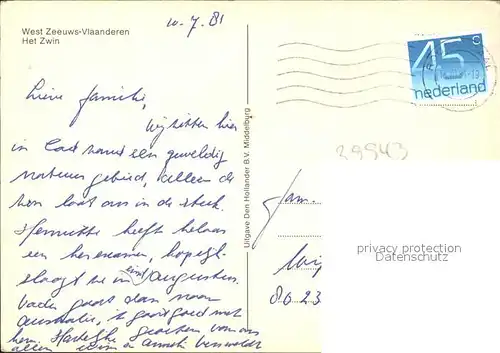 West Zeeuws-Vlaanderen
Het Zwin
10-7-81
Lieve familie,
wij zitten hier
in Cadzand een geweldig
natuurgebied, alleen de
zon laat ons in de steek.
heeft helaas
een herexamen, hopelijk
slaagt ze in eind Augustus.
Vader gaat dan naar
Australië, 't gaat goed met
hem. Hartelijke groeten van ons
allen
Uitgave Den Hollander B.V. Middelburg
45c
nederland
39943
Fam.
privacy protection
Datenschutz